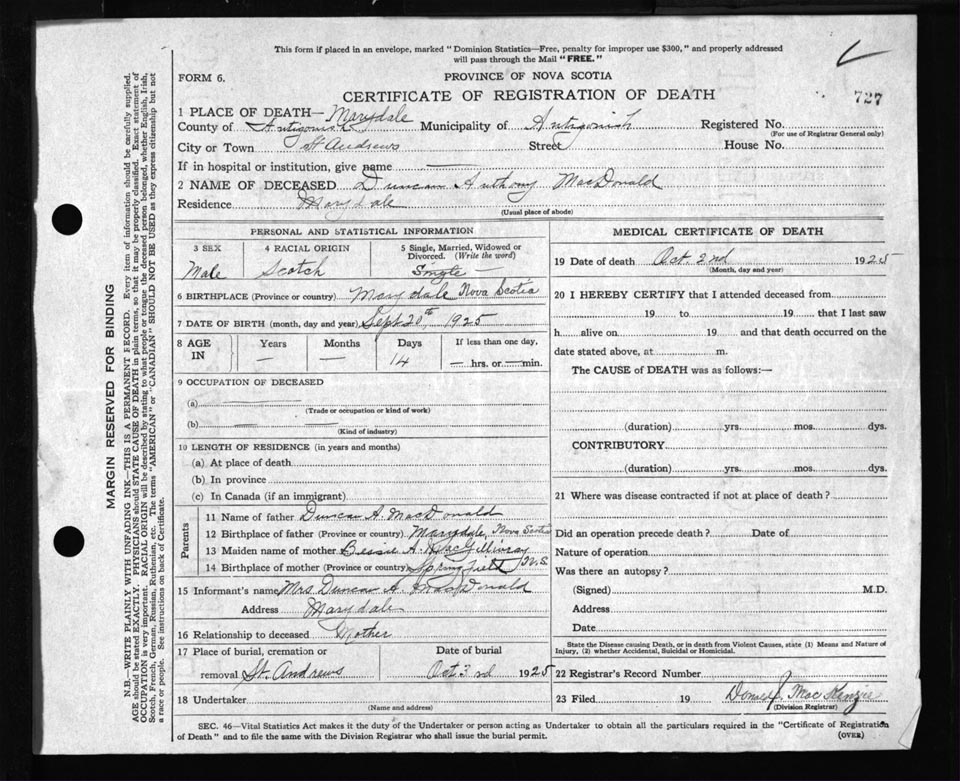 This form if placed in an envelope, marked "Dominion Statistics—Free, penalty for improper use $300," and properly addressed
will pass through the Mail "FREE."
FORM 6.
PROVINCE OF NOVA SCOTIA
CERTIFICATE OF REGISTRATION OF DEATH
727
1 PLACE OF DEATH— Marydale
County of Antigonish Municipality of Antigonish Registered No.
(For use of Registrar General only)
City or Town St Andrews Street House No.
If in hospital or institution, give name —
2 NAME OF DECEASED Duncan Anthony MacDonald
Residence Marydale
(Usual place of abode)
PERSONAL AND STATISTICAL INFORMATION
3 SEX 4 RACIAL ORIGIN 5 Single, Married, Widowed or
Divorced. (Write the word)
Male Scotch Single —
6 BIRTHPLACE (Province or country) Marydale Nova Scotia
7 DATE OF BIRTH (month, day and year) Sept 20th, 1925
8 AGE IN Years Months Days If less than one day,
— — 14 — hrs. or — min.
9 OCCUPATION OF DECEASED
(a) —
(Trade or occupation or kind of work)
(b) — —
(Kind of industry)
10 LENGTH OF RESIDENCE (in years and months)
(a) At place of death
(b) In province
(c) In Canada (if an immigrant)
Parents
11 Name of father Duncan A. MacDonald
12 Birthplace of father (Province or country) Marydale, Nova Scotia
13 Maiden name of mother Bessie A. MacGillivray
14 Birthplace of mother (Province or country) Springfield N.S
15 Informant's name Mrs Duncan A. MacDonald
Address Marydale
16 Relationship to deceased Mother
17 Place of burial, cremation or Date of burial
removal St. Andrews Oct 3rd 1925
18 Undertaker
(Name and address)
MEDICAL CERTIFICATE OF DEATH
19 Date of death Oct. 2nd 1925
(Month, day and year)
20 I HEREBY CERTIFY that I attended deceased from
19 to 19 that I last saw
h alive on 19 and that death occurred on the
date stated above, at m.
The CAUSE of DEATH was as follows:—
(duration) yrs. mos. dys.
CONTRIBUTORY
(duration) yrs. mos. dys.
21 Where was disease contracted if not at place of death?
Did an operation precede death? Date of
Nature of operation
Was there an autopsy?
(Signed) M.D.
Address
Date
State the Disease causing Death, or in death from Violent Causes, state (1) Means and Nature of
Injury, (2) whether Accidental, Suicidal or Homicidal.
22 Registrar's Record Number
23 Filed 19 MacKenzie
(Division Registrar)
SEC. 46—Vital Statistics Act makes it the duty of the Undertaker or person acting as Undertaker to obtain all the particulars required in the "Certificate of Registration
of Death" and to file the same with the Division Registrar who shall issue the burial permit.
(OVER)
MARGIN RESERVED FOR BINDING
N.B.—WRITE PLAINLY WITH UNFADING INK—THIS IS A PERMANENT RECORD. Every item of information should be carefully supplied.
AGE should be stated EXACTLY. PHYSICIANS should STATE CAUSE OF DEATH in plain terms, so that it may be properly classified. Exact statement of
OCCUPATION is very important. RACIAL ORIGIN will be described by stating to what people or tongue the deceased person belonged, whether English, Irish,
Scotch, French, German, Russian, Ruthenian, etc. The terms "AMERICAN" or "CANADIAN" SHOULD NOT BE USED as they express citizenship but not
a race or people. See instructions on back of Certificate.